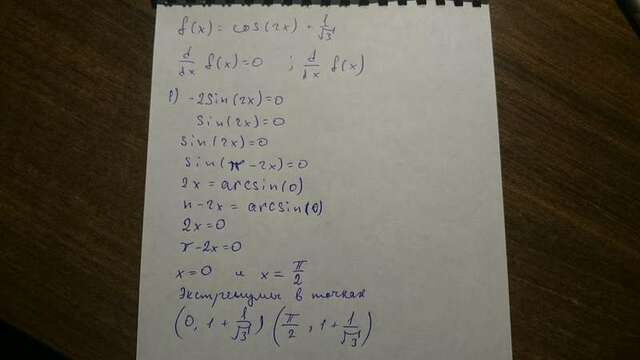 f(x) = cos(2x) + 1/√3
d/dx f(x)=0 ; d/dx f(x)
1) -2sin(2x)=0
sin(2x)=0
sin(2x)=0
sin(π-2x)=0
2x = arcsin(0)
π-2x = arcsin(0)
2x=0
π-2x=0
x=0 и x= π/2
Экстремумы в точках
(0, 1+ 1/√3) (π/2, 1+ 1/√3)